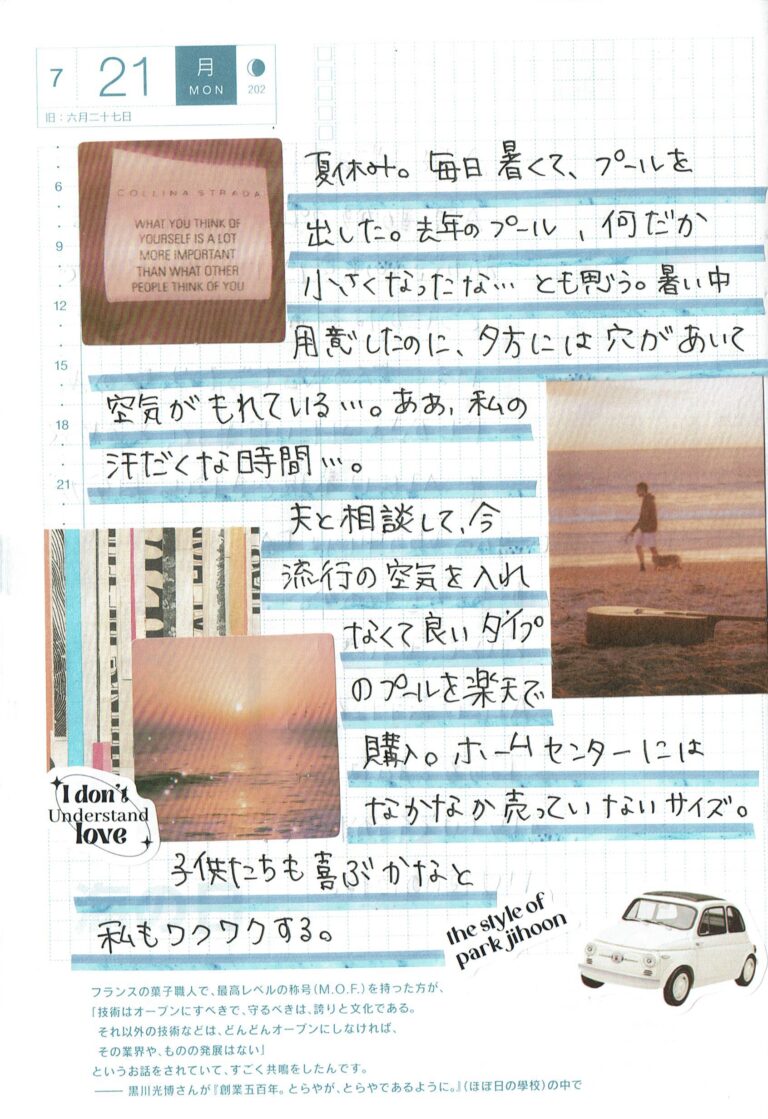 7 21 月 MON 202
旧:六月二十七日
6
9
12
15
18
21
COLLINA STRADA
WHAT YOU THINK OF
YOURSELF IS A LOT
MORE IMPORTANT
THAN WHAT OTHER
PEOPLE THINK OF YOU
夏休み。毎日暑くて、プールを
出した。去年のプール、何だか
小さくなったな… とも思う。暑い中
用意したのに、夕方には穴があいて
空気がもれている…。ああ、私の
汗だくな時間…。
夫と相談して、今
流行の空気を入れ
なくて良いタイプ
のプールを楽天で
購入。ホームセンターには
なかなか売っていないサイズ。
子供たちも喜ぶかなと
私もワクワクする。
I don't
Understand
love
the style of
park jihoon
フランスの菓子職人で、最高レベルの称号(M.O.F.)を持った方が、
「技術はオープンにすべきで、守るべきは、誇りと文化である。
それ以外の技術などは、どんどんオープンにしなければ、
その業界や、ものの発展はない」
というお話をされていて、すごく共鳴をしたんです。
—— 黒川光博さんが『創業五百年。とらやが、とらやであるように。』(ほぼ日の學校)の中で